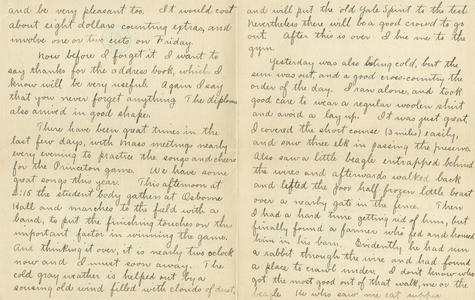 and be very pleasant too. It would cost
about eight dollars counting extras, and
involve one or two cuts on Friday.
Now before I forget it I want to
say thanks for the address book, which I
know will be very useful. Again I say
that you never forget anything. The diploma
also arrived in good shape.
There have been great times in the
last few days, with mass meetings nearly
every evening to practice the songs and cheers
for the Princeton game. We have some
great songs this year. This afternoon at
2:15 the student body gathers at Osborne
Hall and marches to the field with a
band, to put the finishing touches on this
important factor in winning the game.
And thinking it over, it is nearly two oclock
now and I must soon away. The
cold gray weather is helped out by a
rousing old wind filled with clouds of dust,
and will put the old Yale Spirit to the test
Nevertheless there will be a good crowd to go
out. After this is over I hie me to the
gym.
Yesterday was also cold, but the
sun was out, and a good cross-country the
order of the day. I ran alone, and took
good care to wear a regular woolen shirt
and avoid a lay up. It was just great
I covered the short course (3 miles) easily,
and saw three elk in passing the preserve.
Also saw a little beagle entrapped behind
the wires and afterwards walked back
and lifted the poor half frozen little beast
over a nearby gate in the fence. Then
I had a hard time getting rid of him, but
finally found a farmer who fed and housed
him in his barn. Evidently he had run
a rabbit through the wire and had found
a place to crawl under. I don't know who
got the most good out of that walk, me or the
beagle. He who saw me eat supper